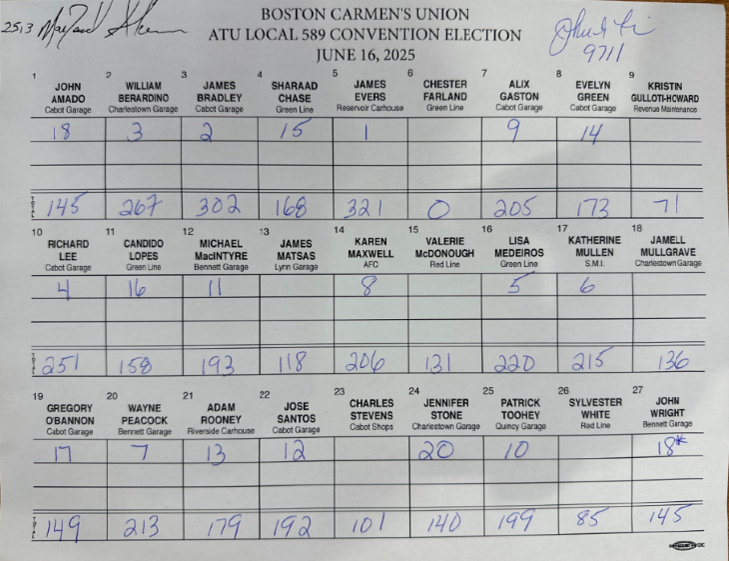 BOSTON CARMEN'S UNION
2513
ATU LOCAL 589 CONVENTION ELECTION
JUNE 16, 2025
9711
1 2 3 4 5 6 7 8 9
JOHN AMADO Cabot Garage
WILLIAM BERARDINO Charlestown Garage
JAMES BRADLEY Cabot Garage
SHARAAD CHASE Green Line
JAMES EVERS Reservoir Carhouse
CHESTER FARLAND Green Line
ALIX GASTON Cabot Garage
EVELYN GREEN Cabot Garage
KRISTIN GULLOTI-HOWARD Revenue Maintenance
18 3 2 15 1 9 14
TOTAL 145 267 302 168 321 0 205 173 71
10 11 12 13 14 15 16 17 18
RICHARD LEE Cabot Garage
CANDIDO LOPES Green Line
MICHAEL MacINTYRE Bennett Garage
JAMES MATSAS Lynn Garage
KAREN MAXWELL AFC
VALERIE McDONOUGH Red Line
LISA MEDEIROS Green Line
KATHERINE MULLEN S.M.I.
JAMELL MULLGRAVE Charlestown Garage
4 16 11 8 5 6
TOTAL 251 158 193 118 206 131 220 215 136
19 20 21 22 23 24 25 26 27
GREGORY O'BANNON Cabot Garage
WAYNE PEACOCK Bennett Garage
ADAM ROONEY Riverside Carhouse
JOSE SANTOS Cabot Garage
CHARLES STEVENS Cabot Shops
JENNIFER STONE Charlestown Garage
PATRICK TOOHEY Quincy Garage
SYLVESTER WHITE Red Line
JOHN WRIGHT Bennett Garage
17 7 13 12 20 10 18*
TOTAL 149 213 179 192 101 140 199 85 145